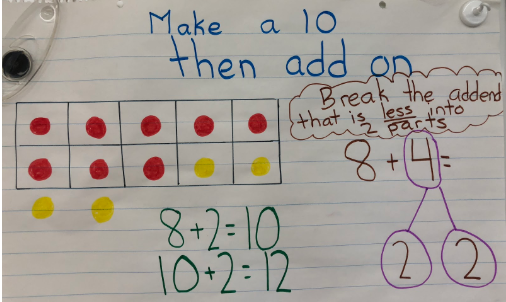 Make a 10
then add on
Break the addend
that is less into
2 parts
8+4=
2 2
8+2=10
10+2=12